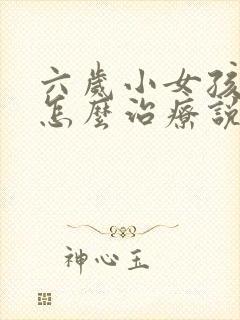 六歲小女孩
怎麼治療說
神心玉